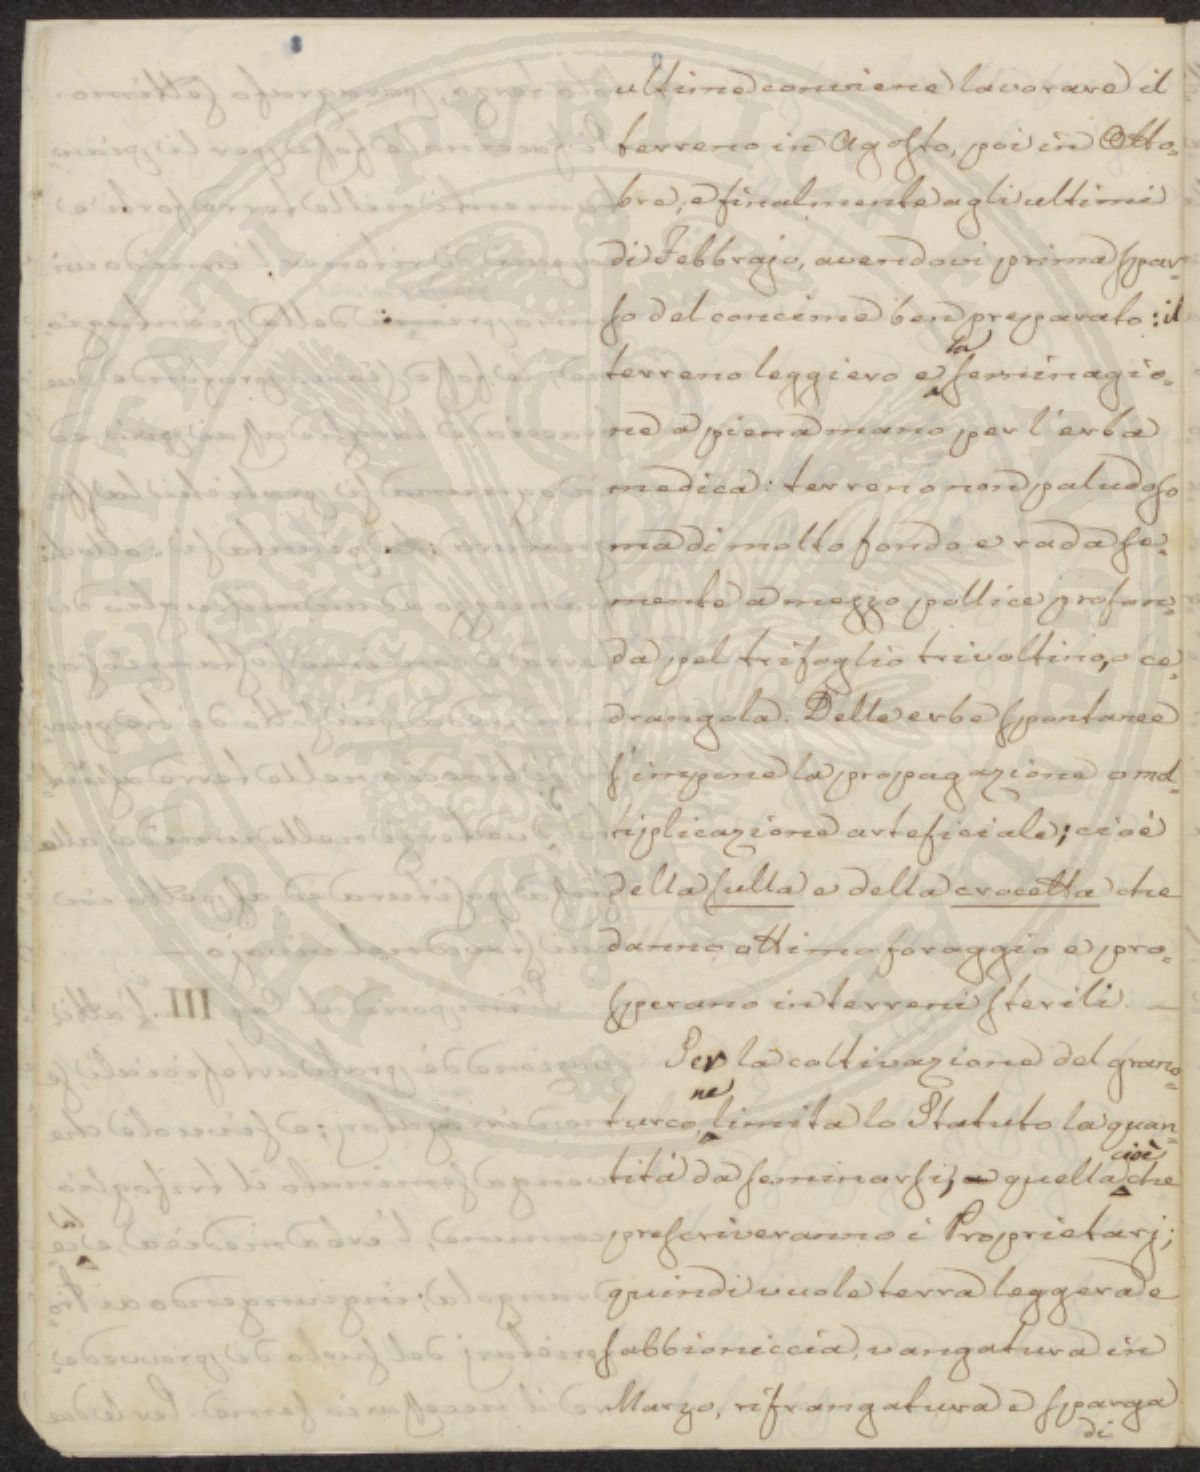 ultime conviene lavorare il
terreno in Agosto, poi in Otto=
bre, e finalmente agli ultimi
di Febbrajo, avendovi prima spar=
so del concime ben preparato: il
terreno leggiero e la seminagio=
ne a piena mano per l'erba
medica: terreno non paludoso
ma di molto fondo e rada se=
mente a mezzo pollice profon=
da pel trifoglio trivoltino, o ce=
drangola. Delle erbe spontanee
s'impone la propagazione o mol=
tiplicazione arteficiale; cioè
della sulla e della crocetta che
danno ottimo foraggio e pro=
sperano in terreni sterili. —
Per la coltivazione del grano=
turco, ne limita lo Statuto la quan=
tità da seminarsi, a quella cioè che
prescriveranno i Proprietarj;
quindi vuole terra leggera e
sabbioniccia, vangatura in
Marzo, rifrangatura e sparga
di